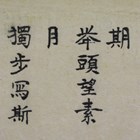 期
举頭望素
月
獨步寫斯